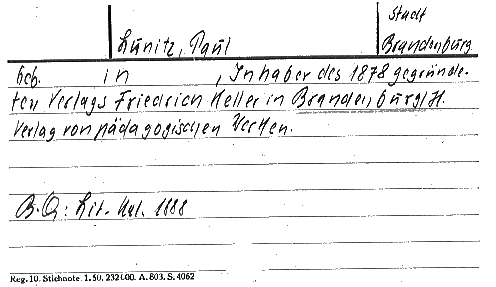 Lunitz, Paul
Stadt
Brandenburg
Geb. in , Inhaber des 1878 gegründe-
ten Verlags Friedrich Heller in Brandenburg/H.
Verlag von pädagogischen Werken.
B.Q: Lit. Kal. 1888
Reg. 10. Stichnote. 1. 50. 232600. A. 803. S. 4062